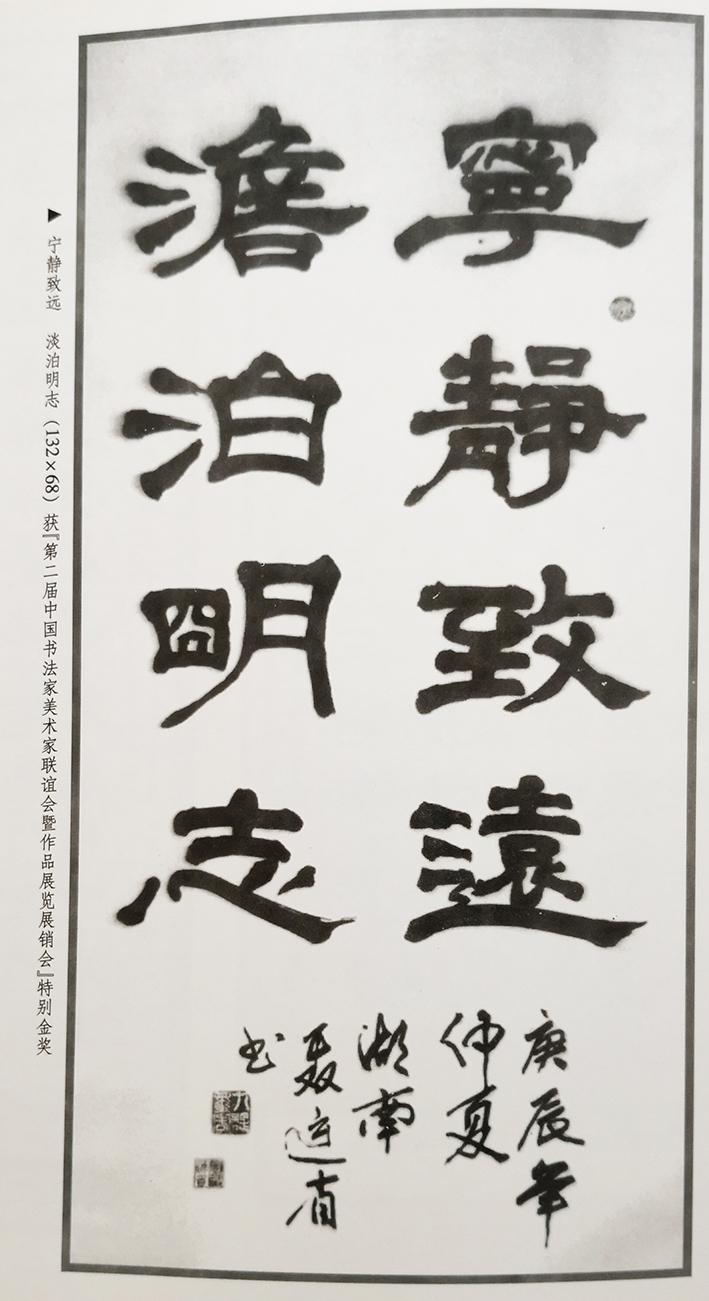 寧靜致遠
澹泊明志
庚辰年
仲夏
湖南
聂运省
书
▶ 宁静致远 淡泊明志（132×68）获『第二届中国书法家美术家联谊会暨作品展览展销会』特别金奖